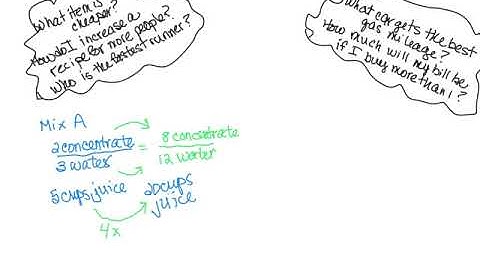 What item is
cheaper?
How do I increase a
recipe for more people?
Who is the fastest runner?
What car gets the best
gas mileage?
How much will my bill be
if I buy more than 1?
Mix A
2 concentrate = 8 concentrate
3 water 12 water
5 cups juice 20 cups
juice
4x